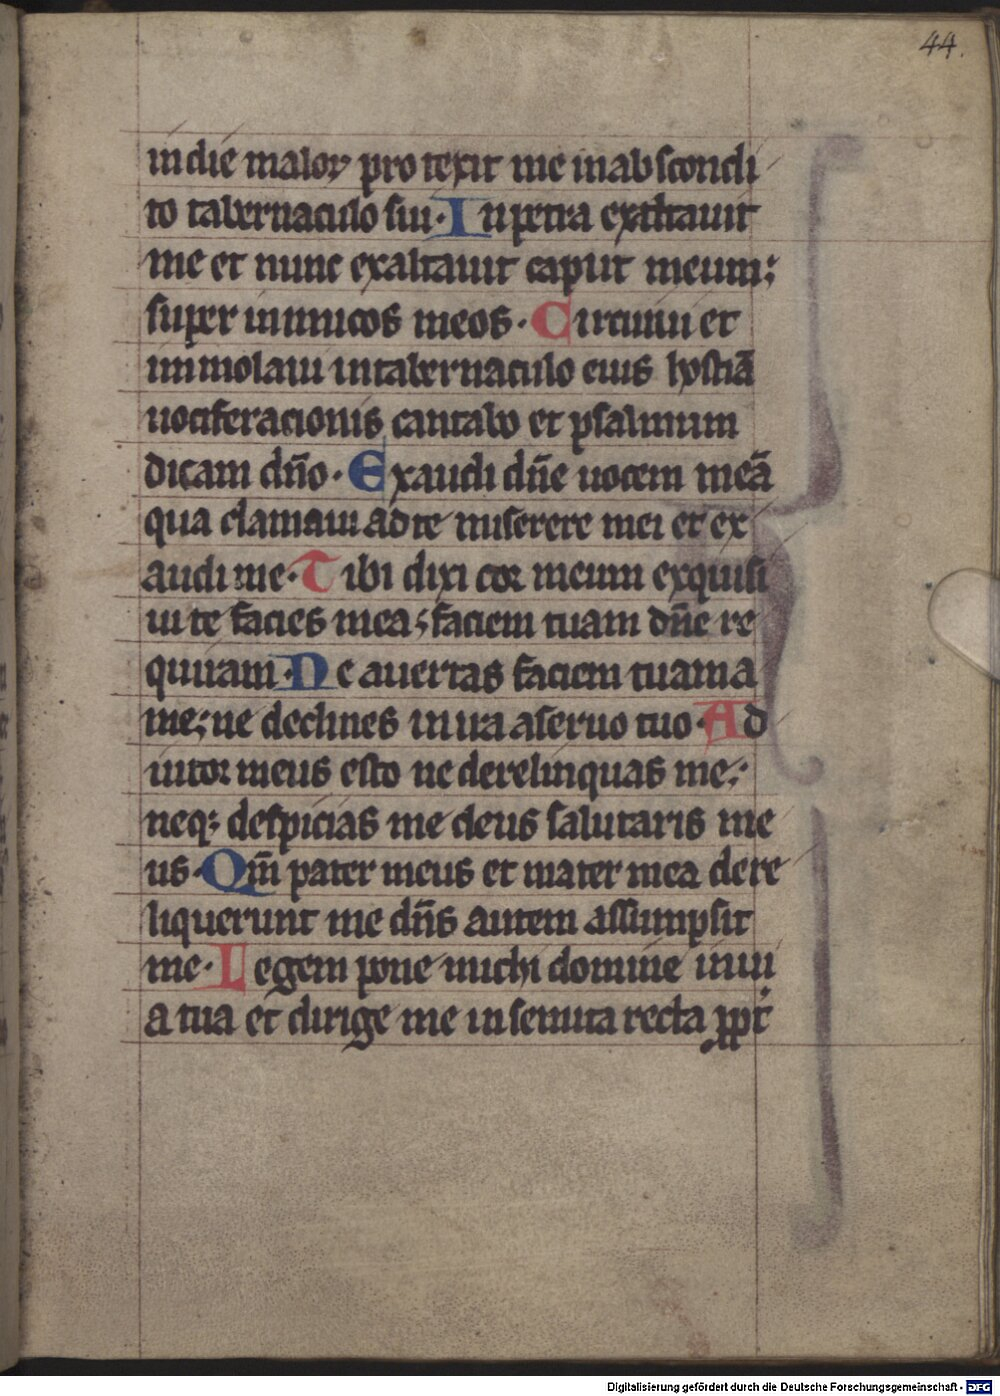 44.
in die maloꝝ protexit me in abscondi
to tabernaculo sui. In petra exaltauit
me et nunc exaltauit caput meum;
super inimicos meos. Circuiui et
immolaui in tabernaculo eius hostiā
uociferacionis cantabo et psalmum
dicam dn̄o. Exaudi dn̄e uocem meā
qua clamaui ad te miserere mei et ex
audi me. Tibi dixi cor meum exquisi
uit te facies mea; faciem tuam dn̄e re
quiram. Ne auertas faciem tuam a
me; ne declines in ira a seruo tuo. Ad
iutor meus esto ne derelinquas me;
neq; despicias me deus salutaris me
us. Qm̄ pater meus et mater mea dere
liquerunt me dn̄s autem assumpsit
me. Legem pone michi domine in ui
a tua et dirige me in semita recta ꝓpt̄
Digitalisierung gefördert durch die Deutsche Forschungsgemeinschaft - DFG